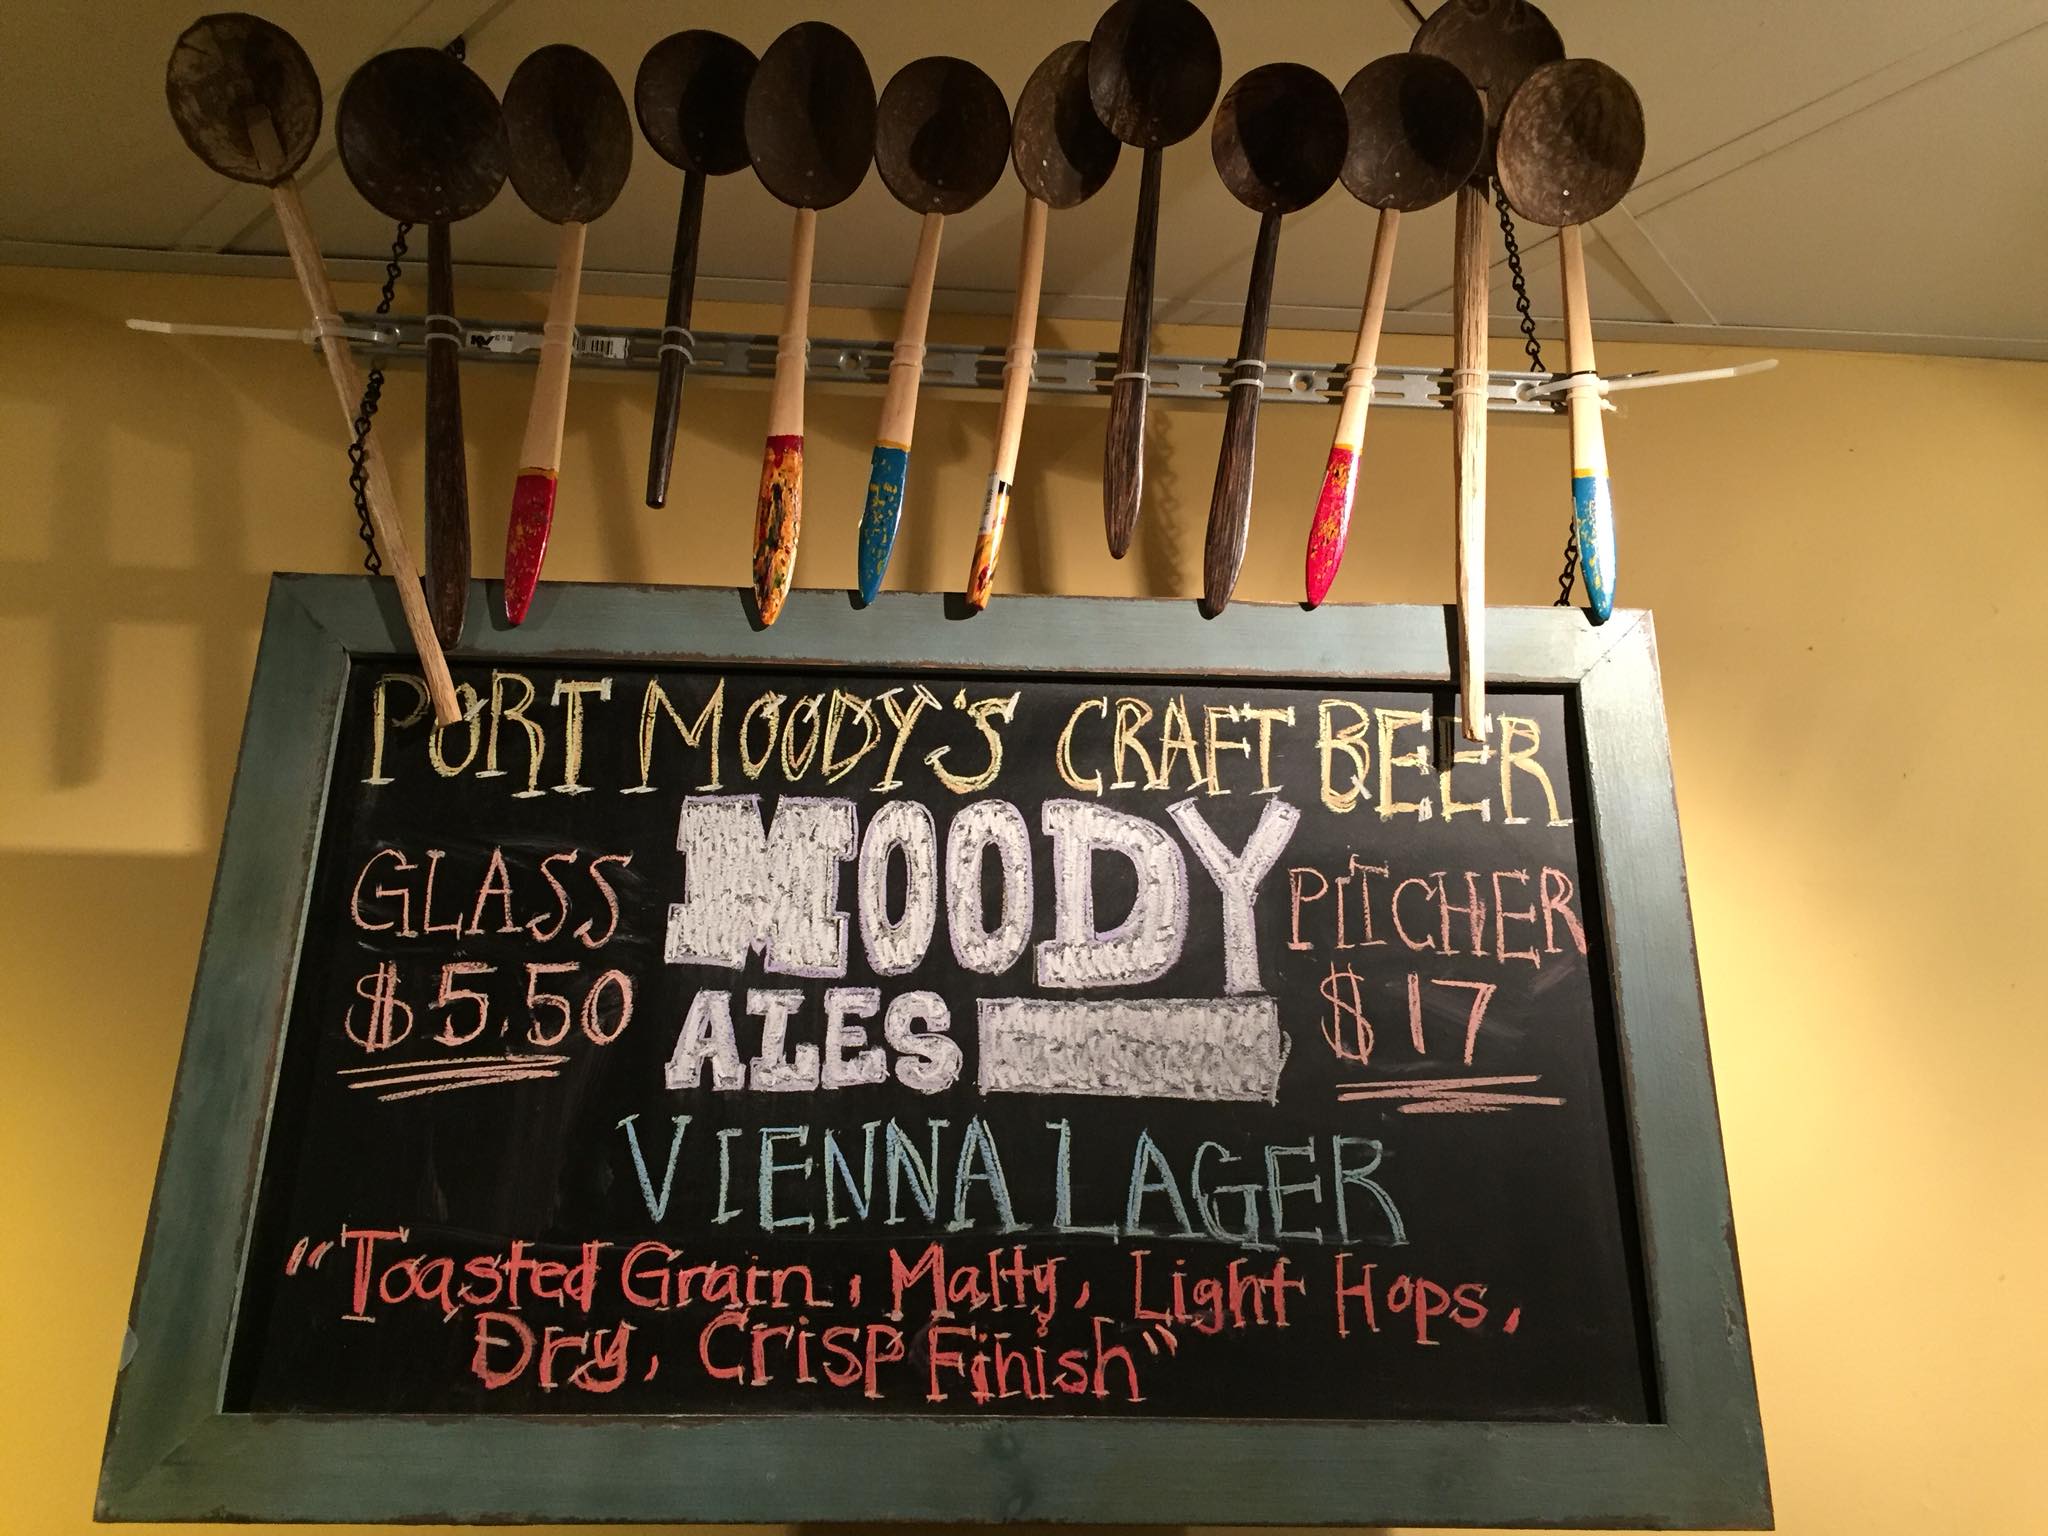 KV
PORT MOODY'S CRAFT BEER
GLASS
$5.50
MOODY
ALES
PITCHER
$17
VIENNA LAGER
"Toasted Grain, Malty, Light Hops,
Dry, Crisp Finish"